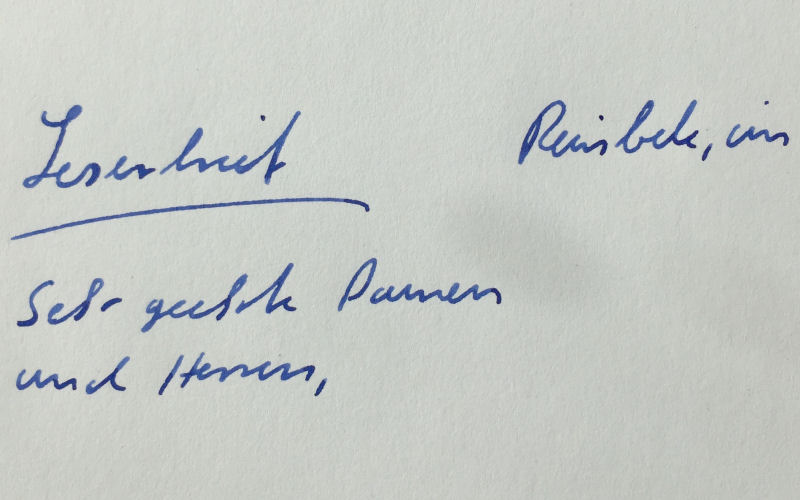 Leserbrief
Reinbek, im
Sehr geehrte Damen
und Herren,